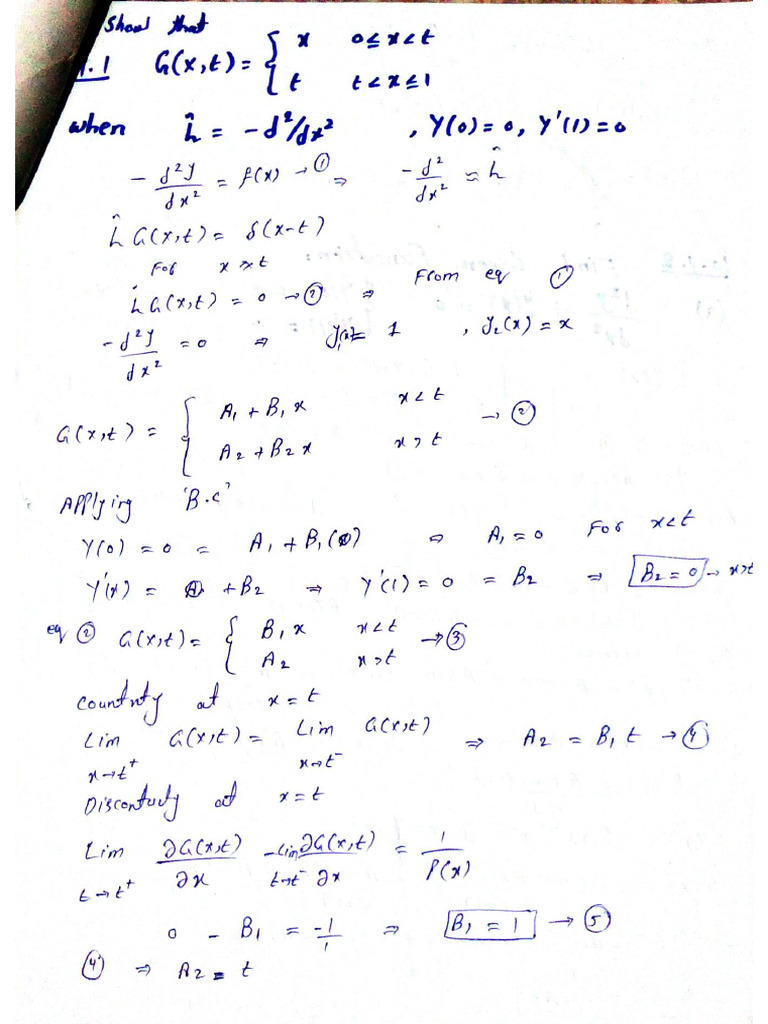 Show that
1.1 G(x,t) = { x 0≤x<t
t t<x≤1
when L̂ = -d²/dx² , Y(0)=0, Y'(1)=0
-d²y/dx² = f(x) → ① ⇒ -d²/dx² = L̂
L̂ G(x,t) = δ(x-t)
For x≠t
L̂G(x,t) = 0 → ② ⇒ From eq ①
-d²y/dx² = 0 ⇒ y₁(x) = 1 , y₂(x) = x
G(x,t) = { A₁ + B₁x x<t
A₂ + B₂x x>t → ②
Applying 'B.C'
Y(0) = 0 = A₁ + B₁(0) ⇒ A₁=0 For x<t
Y'(x) = 0 + B₂ ⇒ Y'(1) = 0 = B₂ ⇒ B₂ = 0 → x>t
eq ② G(x,t) = { B₁x x<t
A₂ x>t → ③
Countnty at x=t
Lim x→t⁺ G(x,t) = Lim x→t⁻ G(x,t) ⇒ A₂ = B₁t → ④
Discontuty at x=t
Lim t→t⁺ ∂G(x,t)/∂x - lim t→t⁻ ∂G(x,t)/∂x = 1/P(x)
0 - B₁ = -1/1 ⇒ B₁ = 1 → ⑤
④ ⇒ A₂ = t